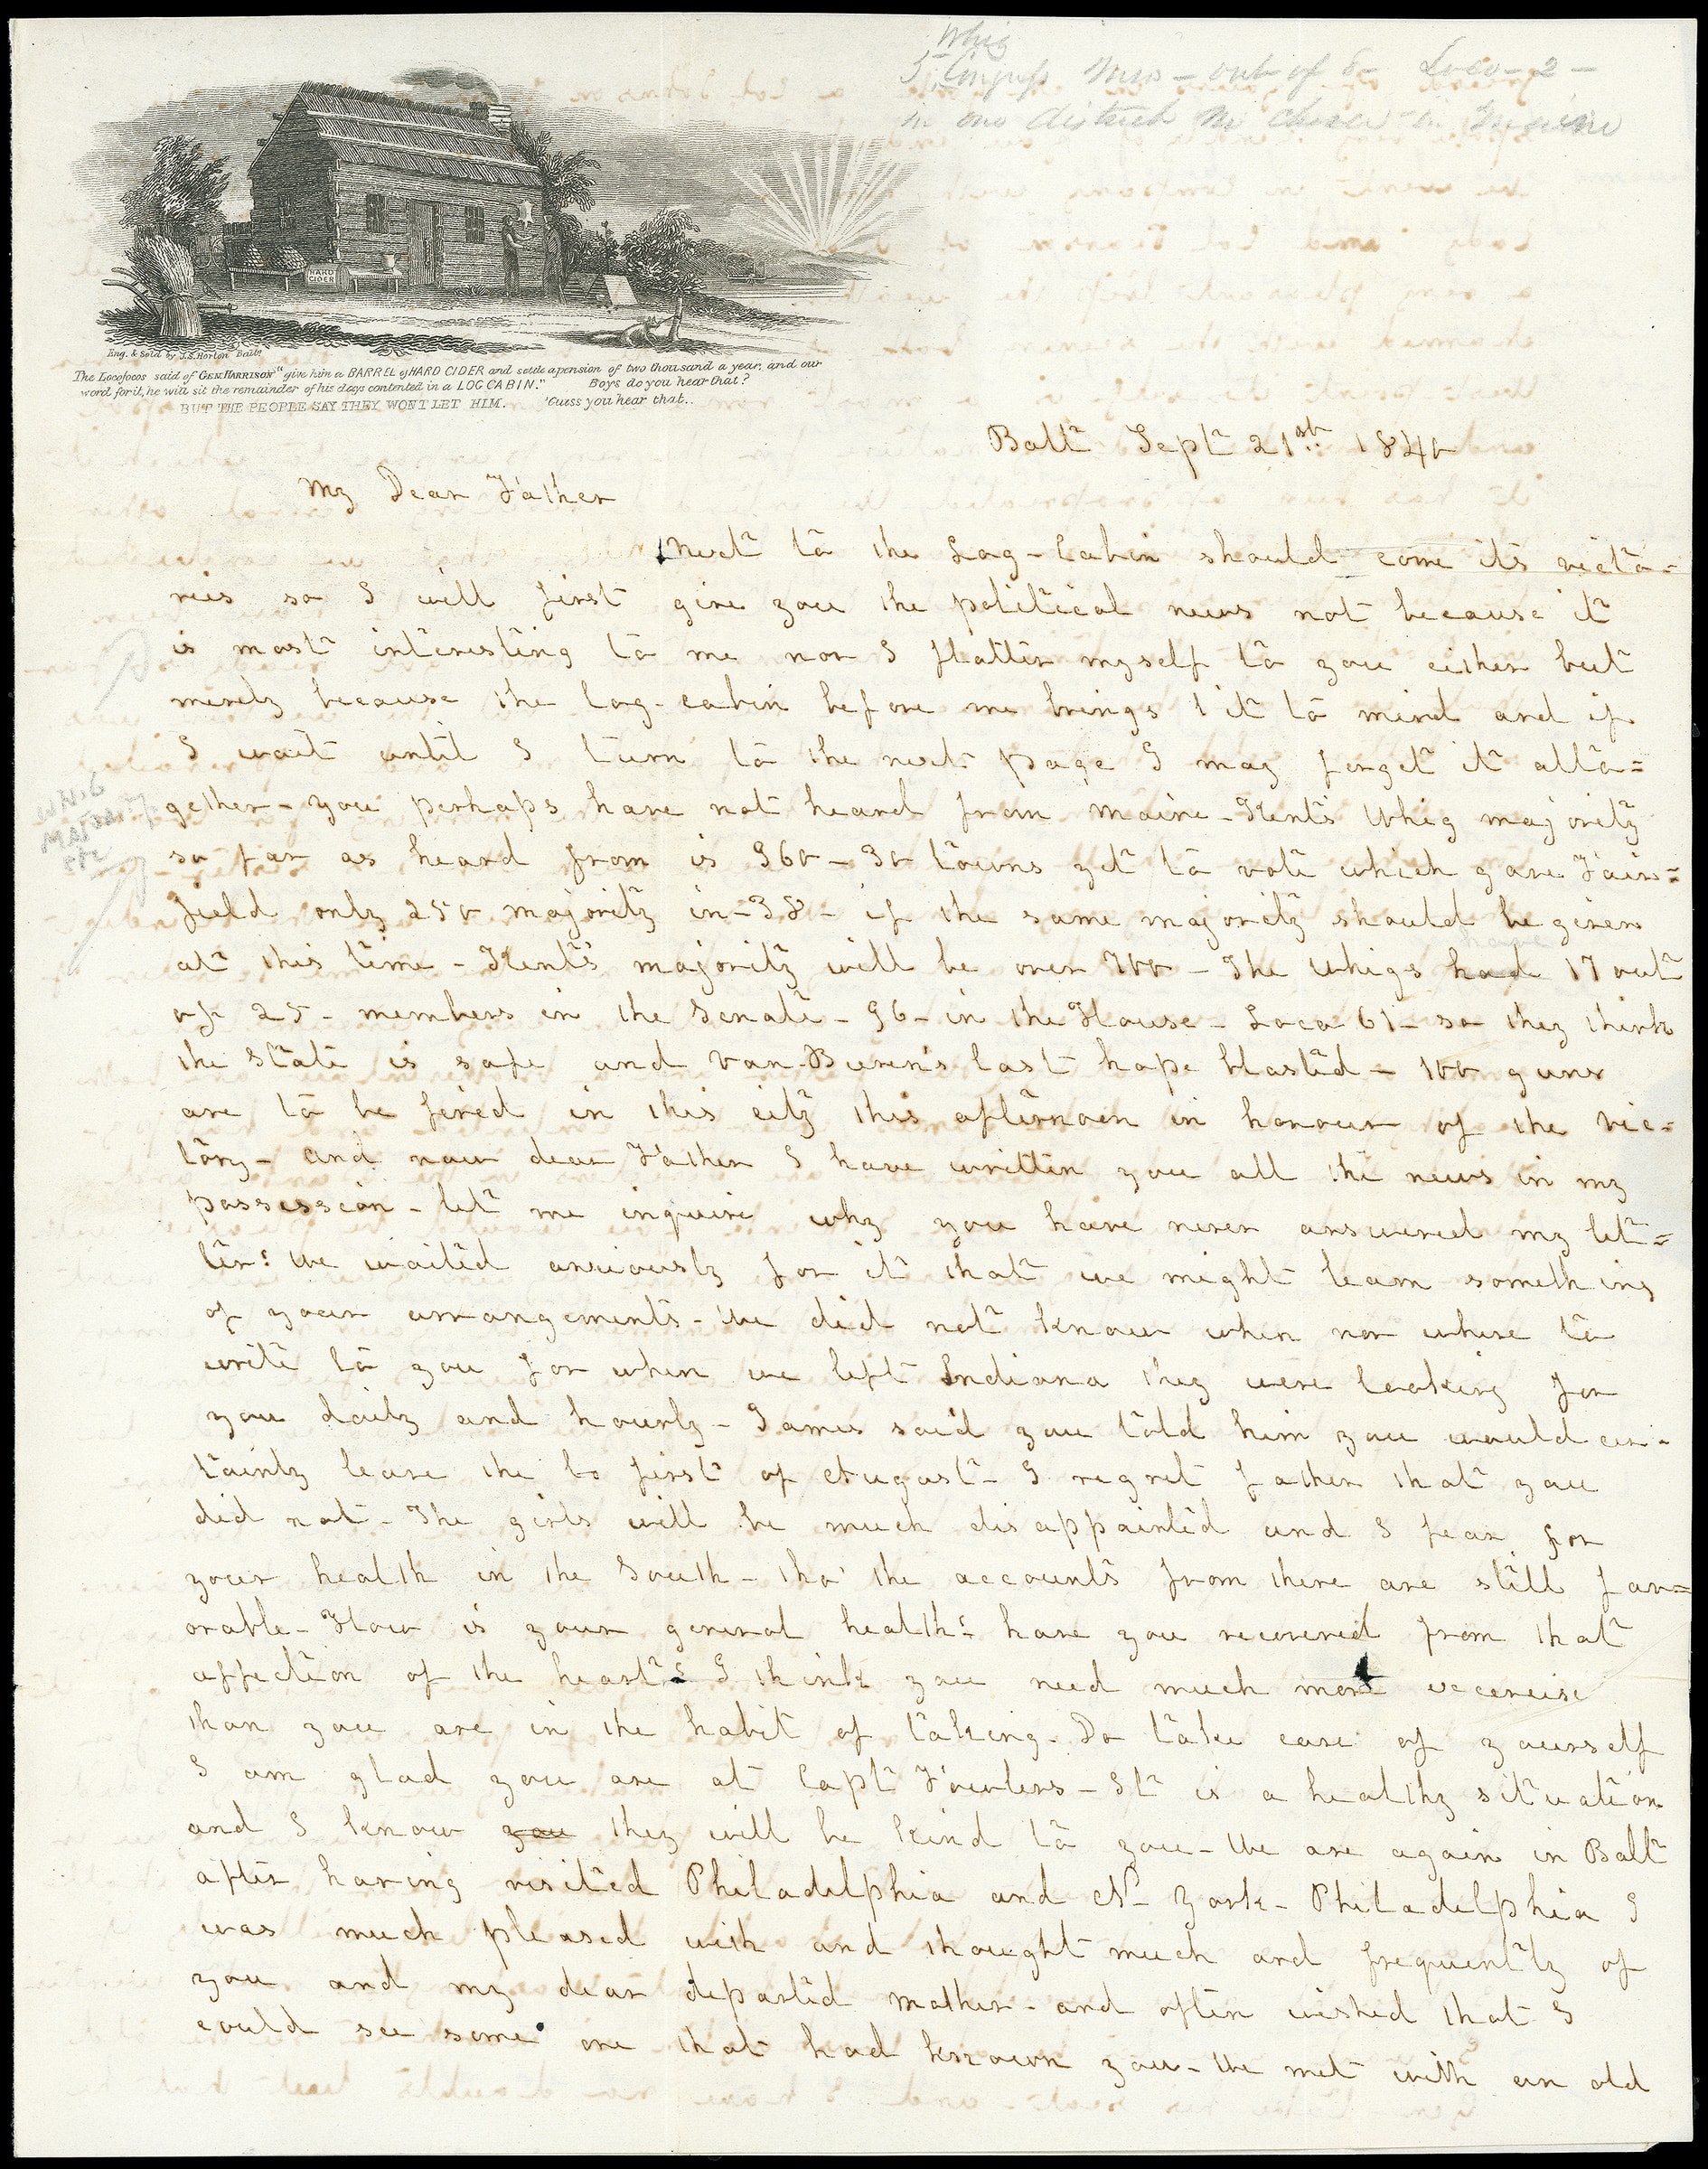 Whig
5 Congress Men - out of 8 - Loco - 2 -
in one district no choice in Maine
HARD CIDER
Eng. & Sold by J.S. Horton Balto.
The Locofocos said of GEN. HARRISON "give him a BARREL of HARD CIDER and settle a pension of two thousand a year, and our
word for it, he will sit the remainder of his days contented in a LOG CABIN." Boys do you hear that?
BUT THE PEOPLE SAY THEY WON'T LET HIM. 'Guess you hear that..
Balt Sept 21st 1840
My Dear Father
Next to the Log-Cabin should come its victo-
ries so I will first give you the political news not because it
is most interesting to me nor I flatter myself to you either but
merely because the log-cabin before me brings it to mind and if
I wait until I turn to the next page I may forget it alto=
gether - you perhaps have not heard from Maine - Kent's Whig majority
WHIG
MAJORITY
etc
so far as heard from is 360 - 30 towns yet to vote which gave Fair=
field only 250 majority in - 38 - if the same majority should be given
at this time - Kent's majority will be over 700 - The Whigs had have 17 out
of 25 - members in the Senate - 96 - in the House - Loco 61 - so they think
the State is safe and Van-Buren's last hope blasted - 100 guns
are to be fired in this city this afternoon in honour of the vic-
tory - and now dear Father I have written you all the news in my
possession - let me inquire why you have never answered my let=
ter? We waited anxiously for it that we might learn something
of your arrangements - We did not know when nor where to
write to you for when we left Indiana they were looking for
you daily and hourly - James said you told him you would cer-
tainly leave the first of August - I regret father that you
did not - The girls will be much disappointed and I fear for
your health in the South - tho' the accounts from there are still fav=
orable - How is your general health? have you recovered from that
affection of the heart? I think you need much more excercise
than you are in the habit of taking. Do take care of yourself
I am glad you are at Capt Fowlers - It is a healthy situation
and I know you they will be kind to you - We are again in Balt
after having visited Philadelphia and N- York - Philadelphia I
was much pleased with and thought much and frequently of
you and my dear departed mother - and often wished that I
could see some one that had known you - We met with an old